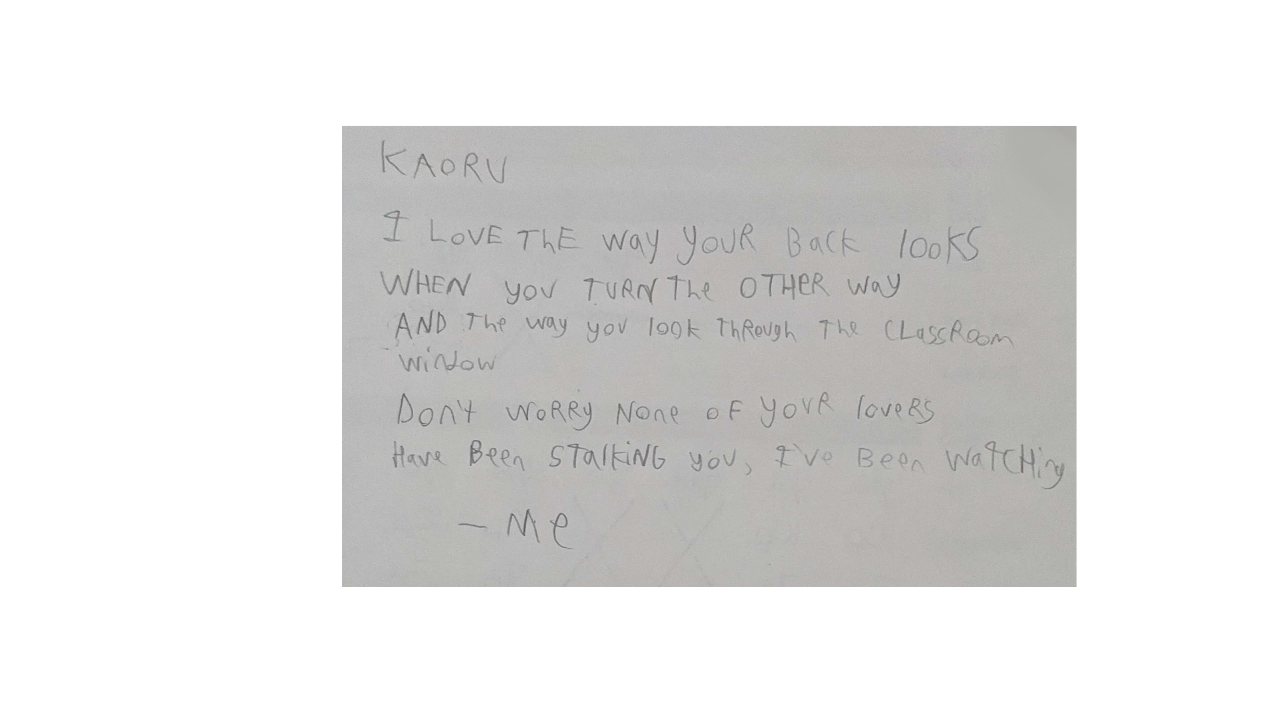 KAORU
I LOVE ThE way YOUR Back looKS
WHEN you TURN The OTHER way
AND The way you look ThRough The CLassRoom
window
Don't WoRRy None oF YOUR loveRS
Have Been STalkiNG you, I've Been WaTCHing
- Me